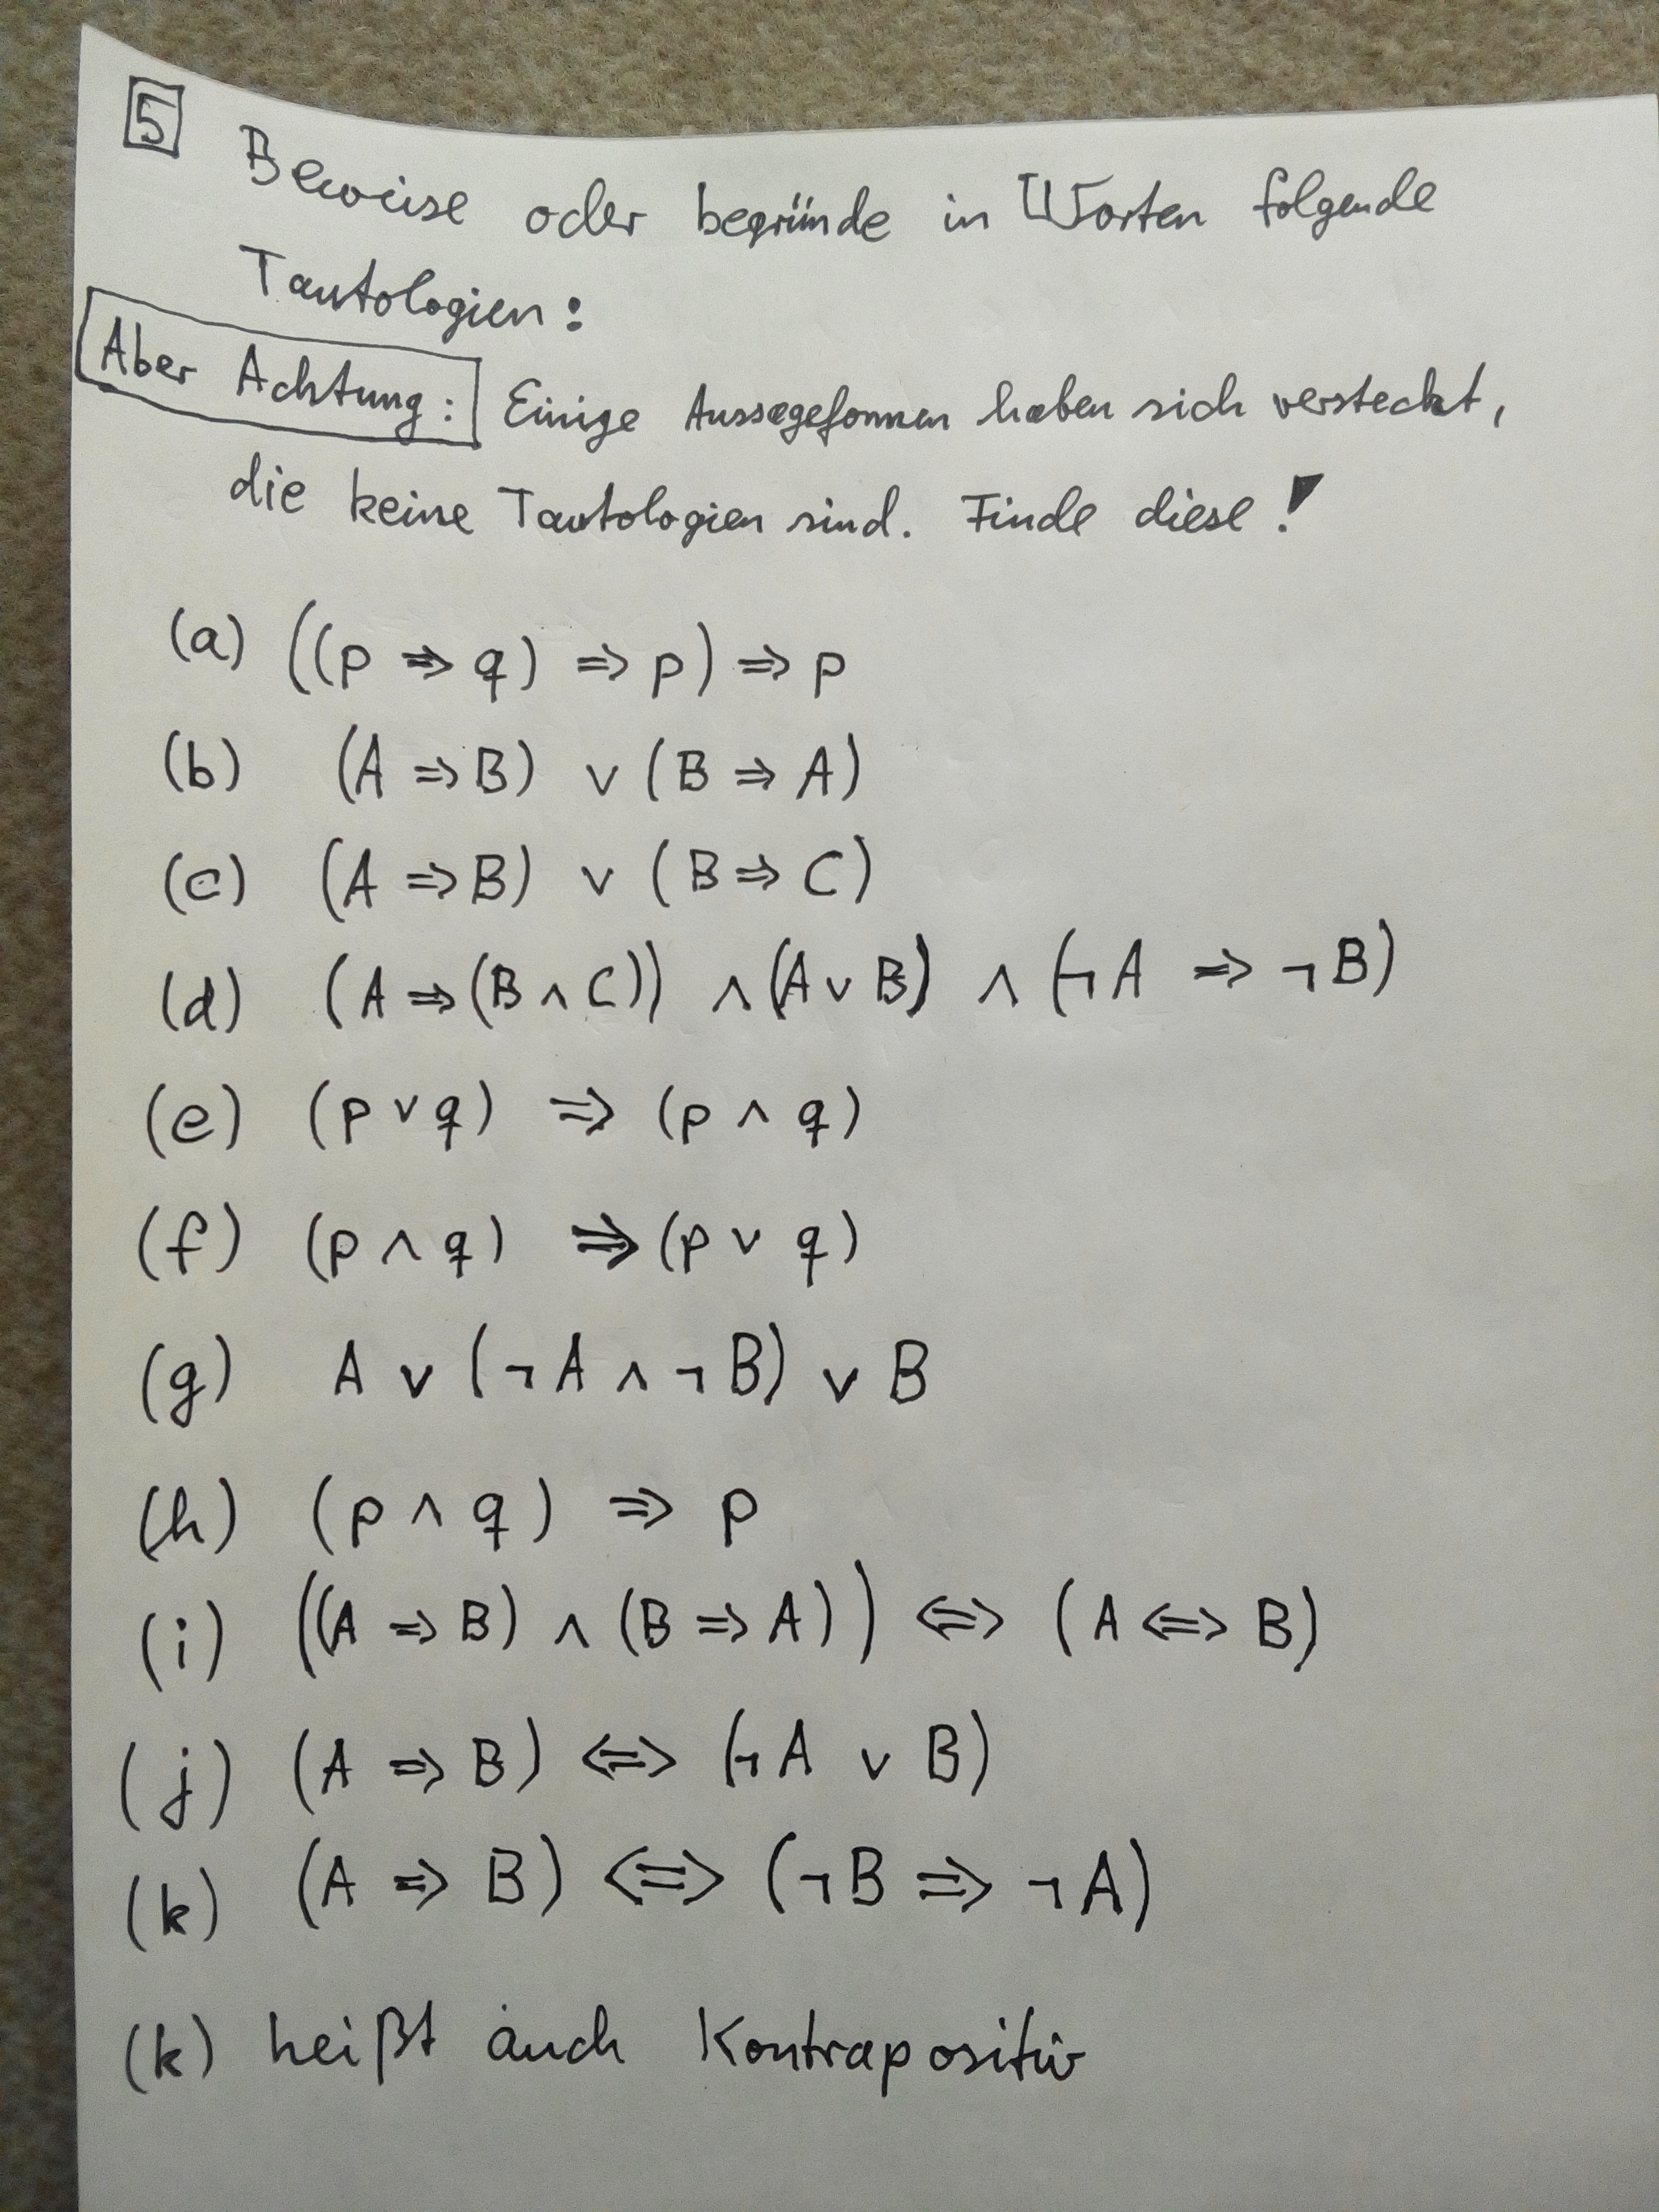 5 Beweise oder begründe in Worten folgende
Tautologien:
Aber Achtung: Einige Aussageformen haben sich versteckt,
die keine Tautologien sind. Finde diese!
(a) ((p ⇒ q) ⇒ p) ⇒ p
(b) (A ⇒ B) ∨ (B ⇒ A)
(c) (A ⇒ B) ∨ (B ⇒ C)
(d) (A ⇒ (B ∧ C)) ∧ (A ∨ B) ∧ (¬A ⇒ ¬B)
(e) (p ∨ q) ⇒ (p ∧ q)
(f) (p ∧ q) ⇒ (p ∨ q)
(g) A ∨ (¬A ∧ ¬B) ∨ B
(h) (p ∧ q) ⇒ p
(i) ((A ⇒ B) ∧ (B ⇒ A)) ⇔ (A ⇔ B)
(j) (A ⇒ B) ⇔ (¬A ∨ B)
(k) (A ⇒ B) ⇔ (¬B ⇒ ¬A)
(k) heißt auch Kontrapositiv